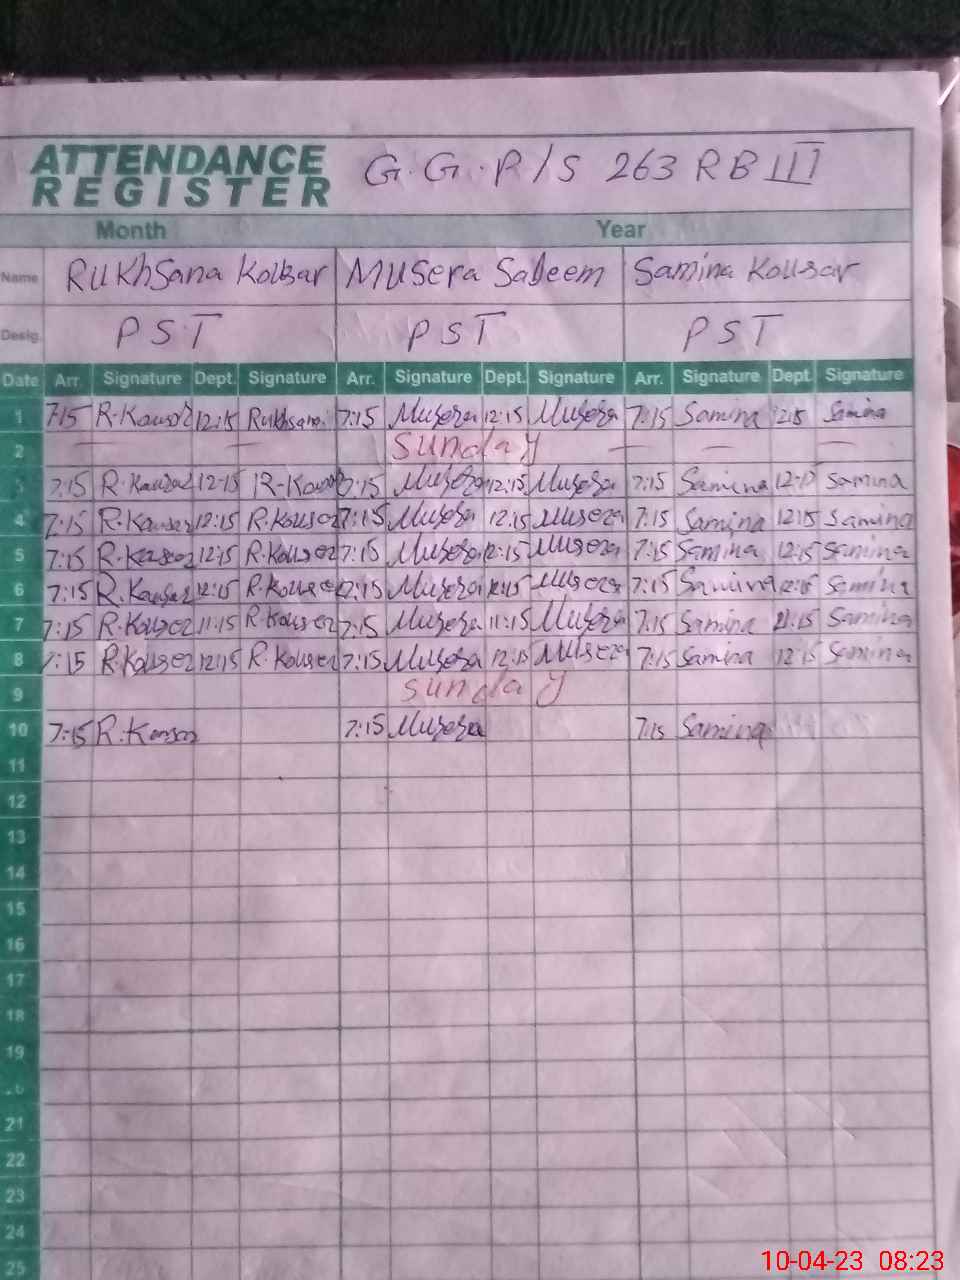 ATTENDANCE REGISTER G.G.P/S 263 RB III
Month Year
Name Rukhsana Kousar Musera Saleem Samina Kousar
Desig. PST PST PST
Date Arr. Signature Dept. Signature Arr. Signature Dept. Signature Arr. Signature Dept. Signature
1 7:15 R.Kousar 12:15 Rukhsana 7:15 Musera 12:15 Musera 7:15 Samina 12:15 Samina
2 Sunday
3 7:15 R.Kausar 12:15 R-Kousar 7:15 Musera 12:15 Musera 7:15 Samina Samina
4 7:15 R.Kauser 12:15 R.Kouser 7:15 Musera 12:15 Musera 7:15 Samina 12:15 Samina
5 7:15 R.Kouser 12:15 R.Kouser 7:15 Musera 12:15 Musera 7:15 Samina 12:15 Samina
6 7:15 R.Kausar 12:15 R.Kouser Musera 12:15 Musera 7:15 Samina 12:15 Samina
7 7:15 R.Kouser 11:15 R.Kouser 7:15 Musera 11:15 Musera 7:15 Samina 11:15 Samina
8 7:15 R.Kouser 12:15 R.Kouser 7:15 Musera 12:15 Musera 7:15 Samina 12:15 Samina
9 Sunday
10 7:15 R.Konsar 7:15 Musera 7:15 Samina
11
12
13
14
15
16
17
18
19
21
22
23
24
25
10-04-23 08:23